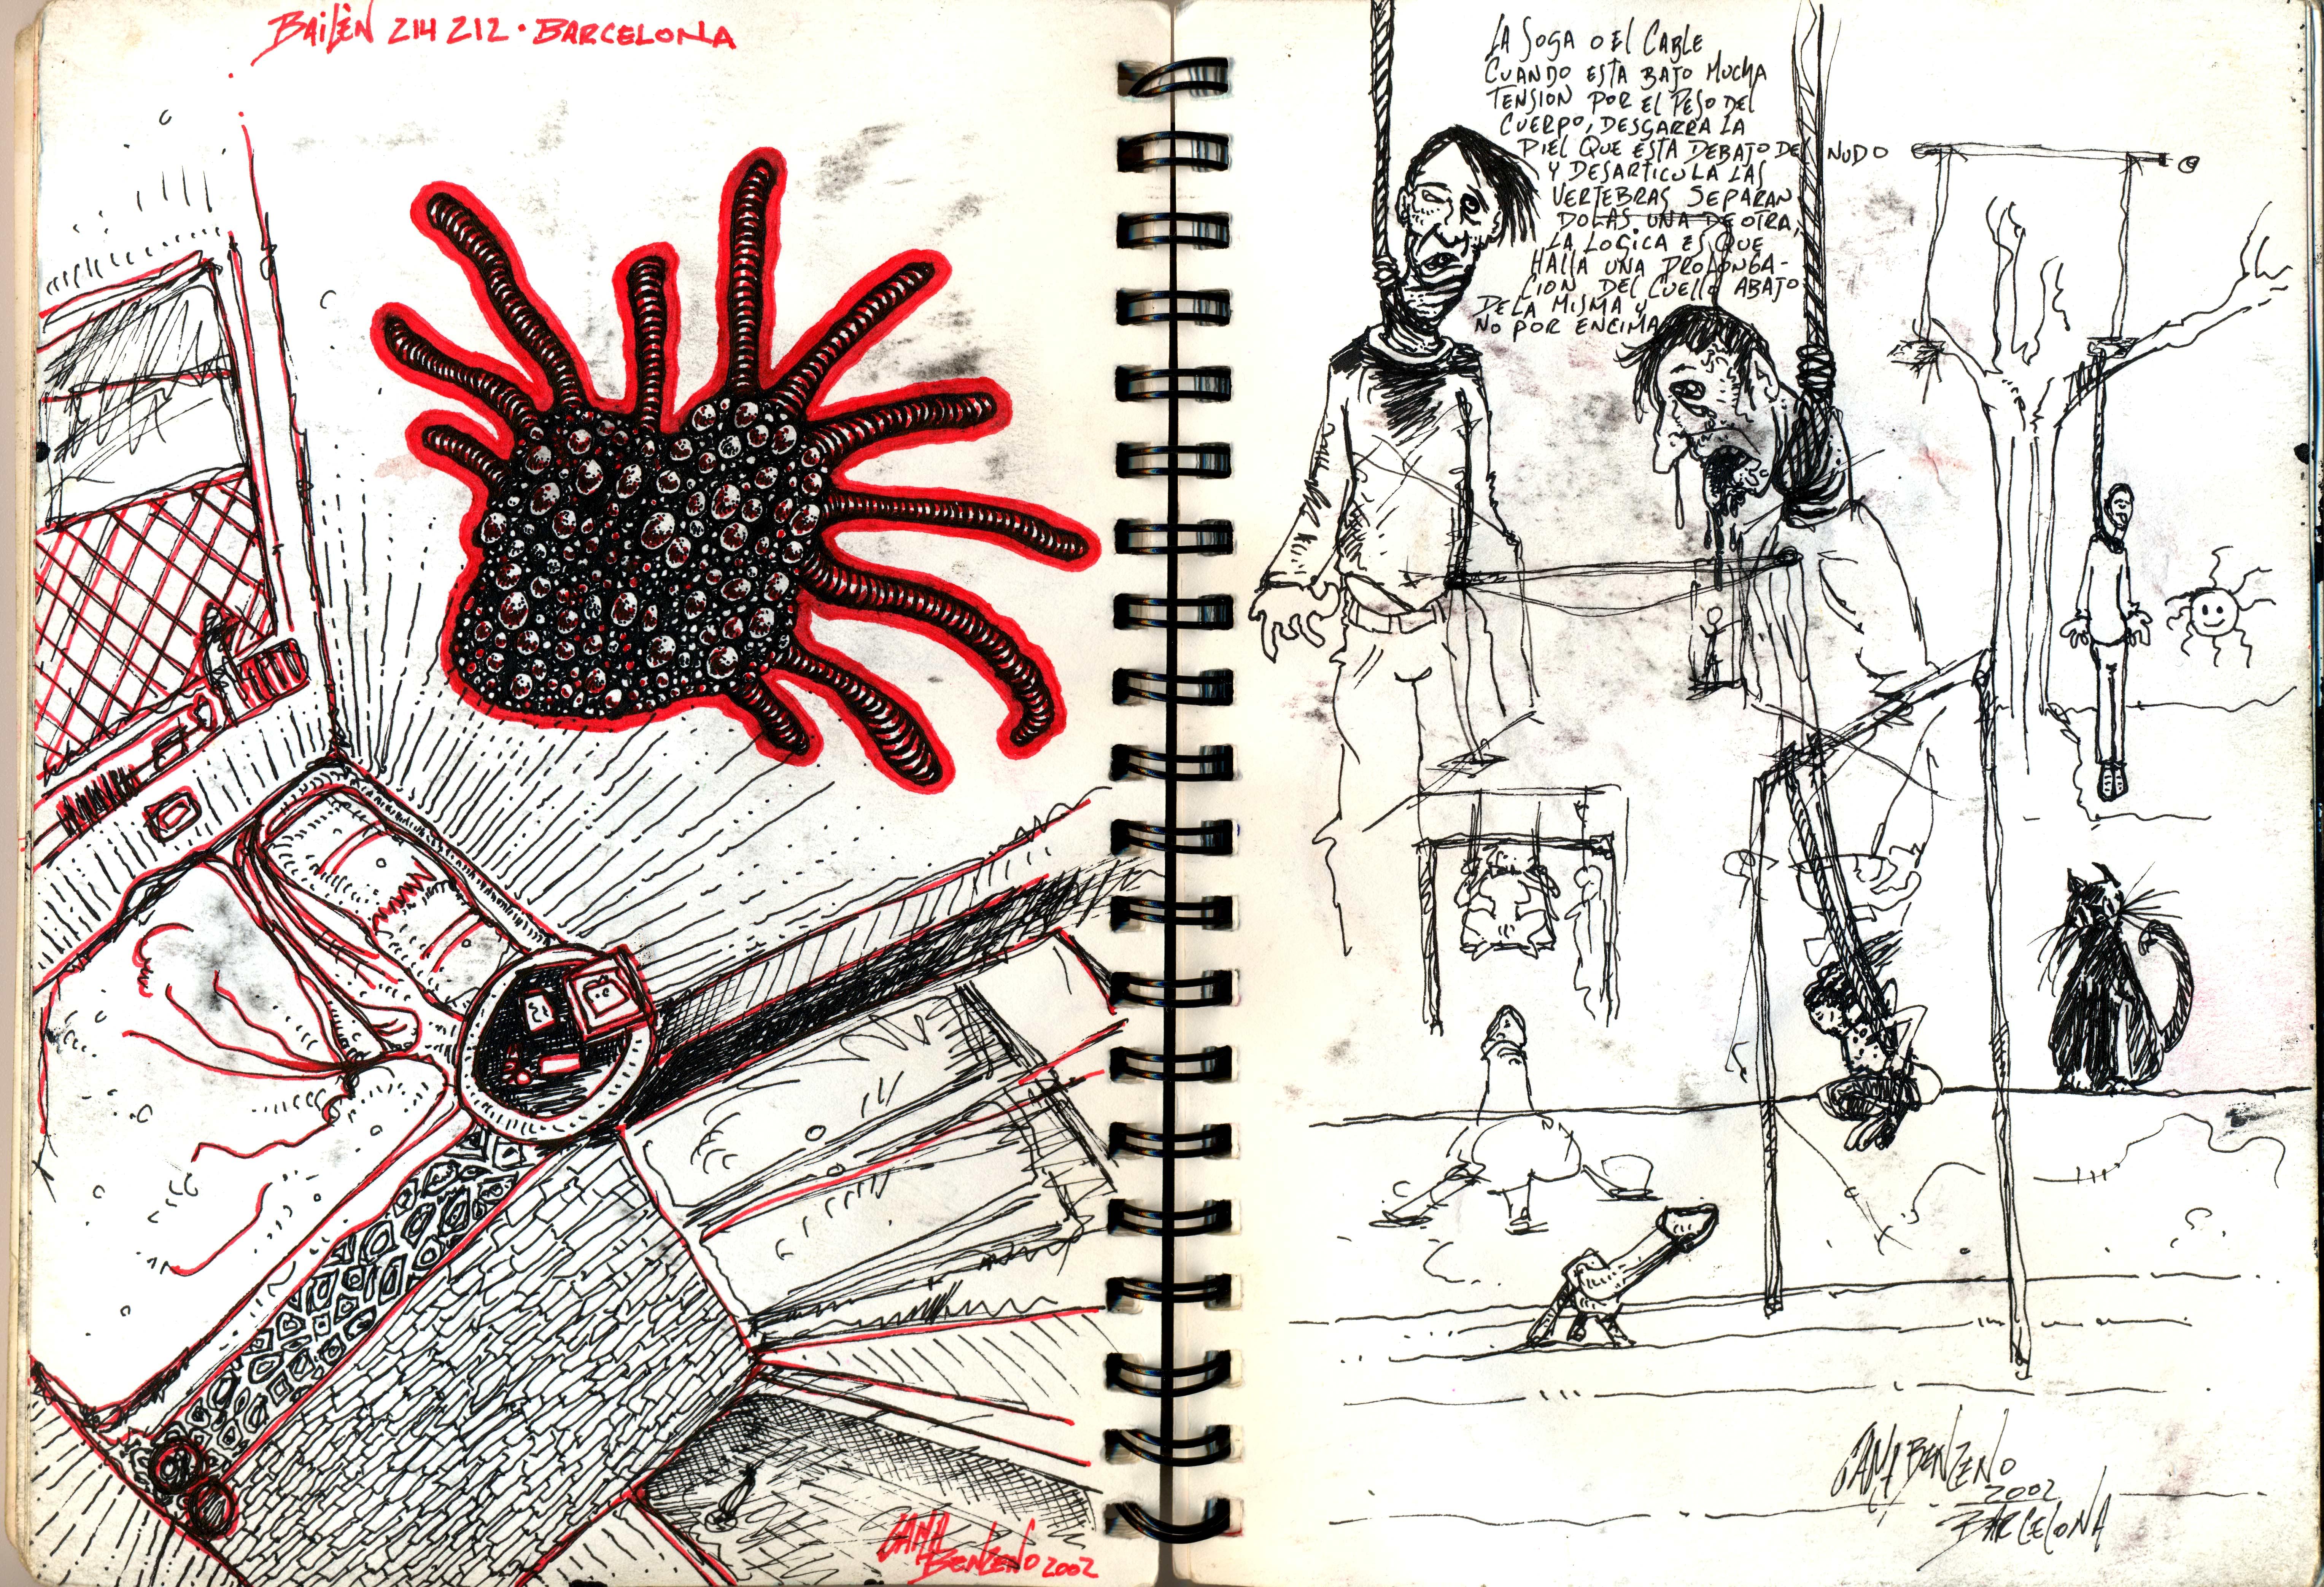 BAILÈN 214 212 · BARCELONA
LA SOGA O EL CABLE
CUANDO ESTA BAJO MUCHA
TENSION POR EL PESO DEL
CUERPO, DESGARRA LA
PIEL QUE ESTA DEBAJO DEL NUDO
Y DESARTICULA LAS
VERTEBRAS SEPARAN
DOLAS UNA DE OTRA,
LA LOGICA ES QUE
HALLA UNA PROLONGA-
CION DEL CUELLO ABAJO
DE LA MISMA Y
NO POR ENCIMA
BENZENO 2002
BENZENO
2002
BARCELONA